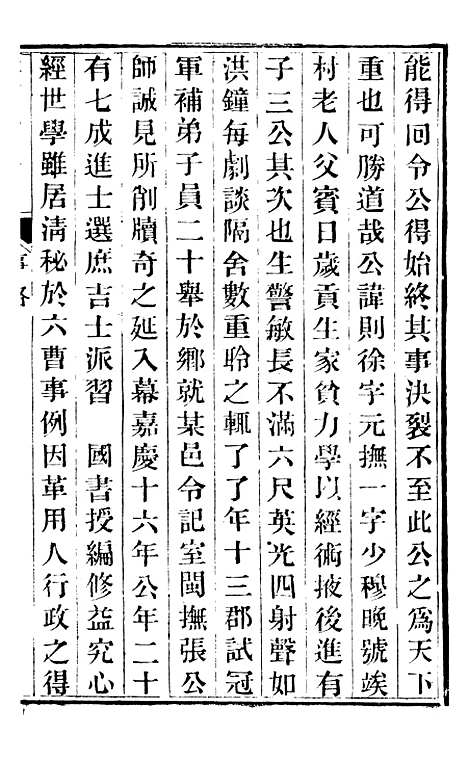 能得回令公得始終其事決裂不至此公之爲天下
重也可勝道哉公諱則徐字元撫一字少穆晚號竢
村老人父賓日歲貢生家貧力學以經術掖後進有
子三公其次也生警敏長不滿六尺英光四射聲如
洪鐘每劇談隔舍數重聆之輒了了年十三郡試冠
軍補弟子員二十舉於鄉就某邑令記室閩撫張公
師誠見所削牘奇之延入幕嘉慶十六年公年二十
有七成進士選庶吉士派習 國書授編修益究心
經世學雖居清秘於六曹事例因革用人行政之得